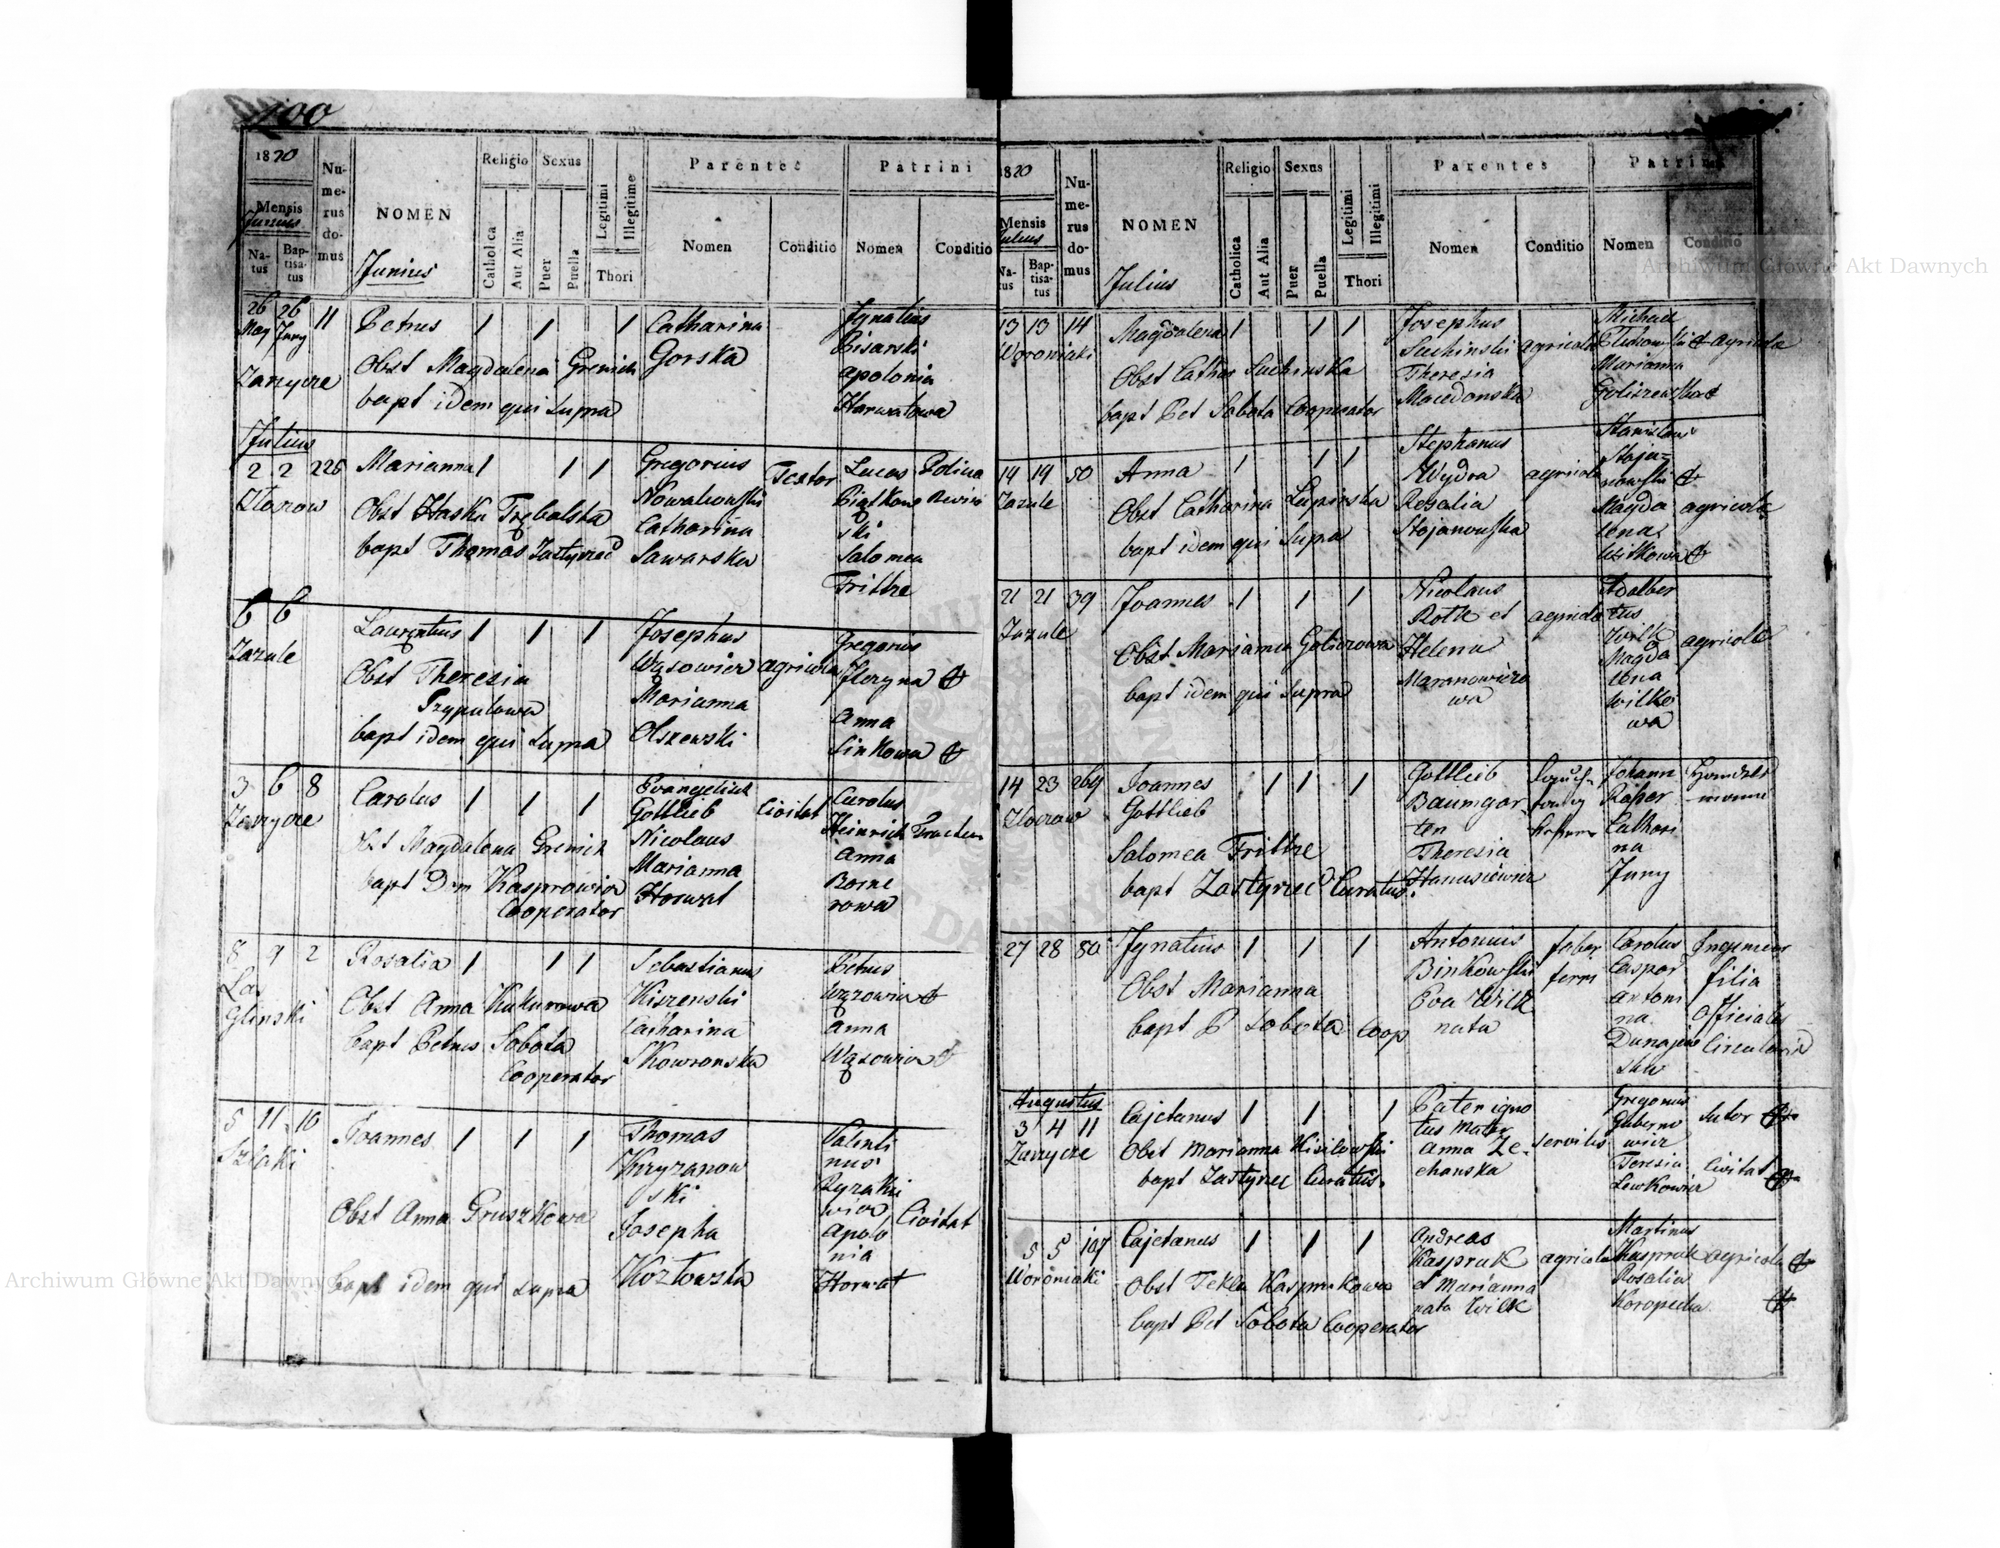 100
1820
Mensis
Junius
Natus
Baptisatus
Numerus domus
NOMEN
Junius
Religio
Catholica
Aut Alia
Sexus
Puer
Puella
Legitimi
Illegitime
Thori
Parentes
Nomen
Conditio
Patrini
Nomen
Conditio
26 26 11 Petrus 1 1 1 Catharina Ignatius
May Juny Gorska Pisarski
Zarycze Obst Magdalena Gremich Apolonia
bapt idem qui supra Harwatowa
Julius
2 2 226 Marianna 1 1 1 Gregorius Textor Lucas
Złoczow Obst Haska Nowakowski
bapt Thomas Catharina ski
Sawarska Salomea
Frittze
6 6 Laurentius 1 1 1 Josephus Gregorius
Zazule Wąsowicz agricola
Obst Theresia Marianna Anna
Przypulowa Olszewski Sinkowa
bapt idem qui supra
3 6 8 Carolus 1 1 1 Evangelisch Carolus
Zarycze Gottlieb Civitat Heinrich
Obst Magdalena Gremich Nicolaus Anna
bapt Dom Kasprowicz Marianna
Cooperator Horwat
8 9 2 Rosalia 1 1 1 Sebastianus Petrus
Las Kiszenski
Glinski Obst Anna Kukurowa Catharina Anna
bapt Petrus Sobota Skowronska Wąsowicz
Cooperator
5 11 10 Joannes 1 1 1 Thomas Valenti
Szlaki Krzyzanow nus
ski
Obst Anna Gruszkowa Josepha Apolo Civitat
Kozłowska nia
bapt idem qui supra Horwat
1820
Mensis
Julius
Natus
Baptisatus
Numerus domus
NOMEN
Julius
Religio
Catholica
Aut Alia
Sexus
Puer
Puella
Legitimi
Illegitimi
Thori
Parentes
Nomen
Conditio
Patrini
Nomen
Conditio
13 13 14 Magdalena 1 1 1 Josephus Michael
Woroniaki Suchinski agricola agricola
Obst Cathar Suchinska Theresia Marianna
bapt Pet Sobota Cooperator Macedonska
14 19 50 Anna 1 1 1 Stephanus Stanislaus
Zazule Wydra agricola Stoja
Obst Catharina Lupinska Rosalia nowski
bapt idem qui supra Stojanowska Magda agricola
lena
Witkowa
21 21 39 Joannes 1 1 1 Nicolaus Adalber
Zazule Roth et agricola tus
Obst Marianna Helena Wilk agricola
bapt idem qui supra Magda
wa lena
Wilko
wa
14 23 269 Joannes 1 1 1 Gottlieb Johann
Złoczow Gottlieb Baumgar
Salomea Frittze ten Cathari
bapt Zastyrzec Curatus Theresia na
Hanusiewicz Juny
27 28 80 Ignatius 1 1 1 Antonius faber Carolus
Obst Marianna Binkowski ferri Caspar filia
bapt P Sobota Coop Eva Wilk Antoni
nata na Officialis
Augustus
3 4 11 Cajetanus 1 1 1 Pater igno Gregorius Sutor
Zarycze tus Mater
Obst Marianna Kisilowski Anna Ze servilis wicz
bapt Zastyrzec Curatus chanska Teresia Civitat
Lewkowicz
5 5 107 Cajetanus 1 1 1 Andreas Martinus
Woroniaki Kaspruk agricola Kaspruk agricola
Obst Tekla Kasprukowa et Marianna Rosalia
bapt Pet Sobota Cooperator nata Wilk Koropecka
Archiwum Główne Akt Dawnych
Archiwum Główne Akt Dawnych